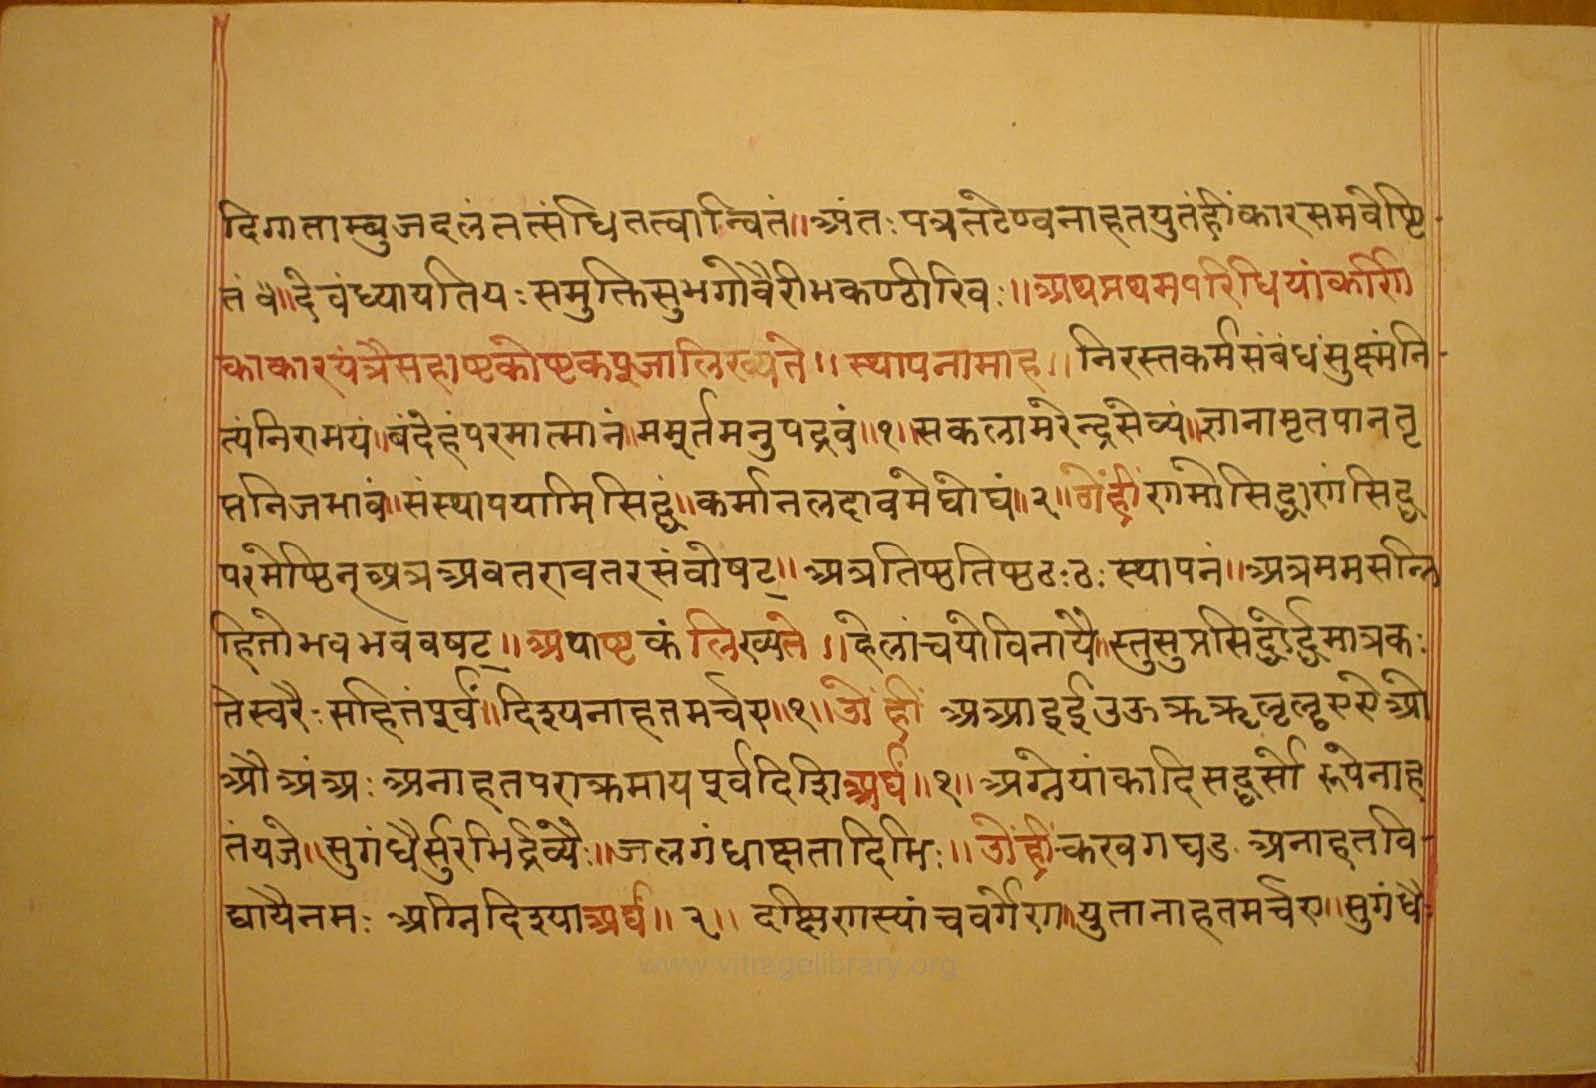 दिगाताम्बुजदलंतत्संधितत्वान्वितं॥अंतःपत्रतटेष्वनाहतयुतंह्रींकारसमवेष्टि-
तंवै॥देवंध्यायतियःसमुक्तिसुभगोवैरीभकण्ठीरिवः॥अथप्रथमपरिधियांकर्णि
काकारयंत्रैसहाष्टकोष्टकपूजालिख्यते॥स्थापनामाह॥निरस्तकर्मसंबंधंसुक्ष्मंनि-
त्यंनिरामयं॥बंदेहंपरमात्मानं॥ममूर्तमनुपद्रवं॥१॥सकलामरेन्द्रसेव्यं॥ज्ञानामृतपानतृ
प्तनिजभावं॥संस्थापयामिसिद्धं॥कर्मानलदावमेघोघं॥२॥ओंह्रींणमोसिद्धाणंसिद्ध
परमेष्ठिन्अत्रअवतरावतरसंवोषट्॥अत्रतिष्ठतिष्ठठःठःस्थापनं॥अत्रममसन्नि
हितोभवभवबषट्॥अथाष्टकंलिख्यते॥हेलांचयोविनायै॥स्तुसुप्रसिद्धोर्द्धमात्रकः
तेस्वरैःसहितंपूर्वं॥दिश्यनाहतमर्चए॥१॥ओंह्रीं अआइईउऊऋॠलृलॄएऐओ
औअंअःअनाहतपराक्रमायपूर्वदिशिअर्घं॥१॥अग्नेयांकादिसद्धर्सो रूपेनाह
तंयजे॥सुगंधैर्सुरभिर्द्रव्यैः॥जलगंधाक्षतादिभिः॥ओंह्रींकखगघङ अनाहतवि-
द्यायैनमः अग्निदिश्याअर्घ॥२॥ दक्षिणस्यांचवर्गेण॥युतानाहतमर्चए॥सुगंधै-
www.vitragelibrary.org